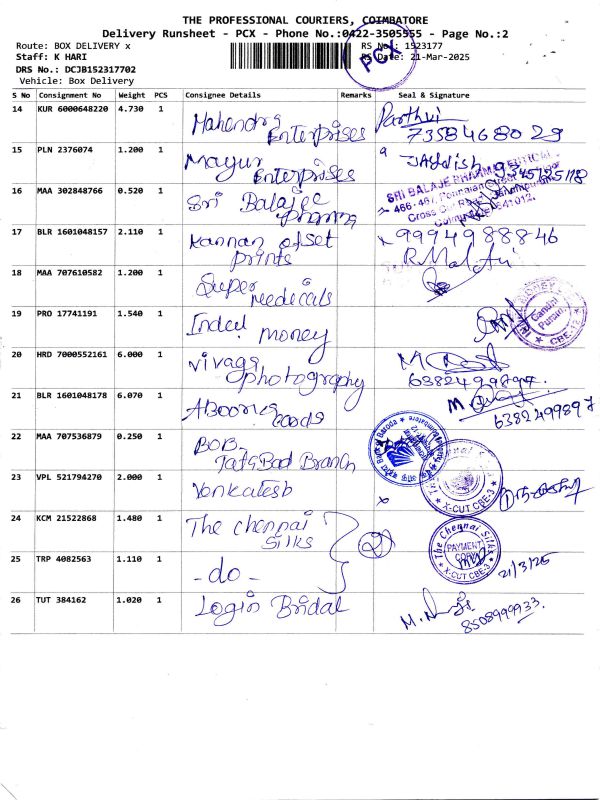 THE PROFESSIONAL COURIERS, COIMBATORE
Delivery Runsheet - PCX - Phone No.:0422-3505555 - Page No.:2
Route: BOX DELIVERY x
RS No.: 1523177
Staff: K HARI
RS Date: 21-Mar-2025
PCX
DRS No.: DCJB152317702
Vehicle: Box Delivery
S No Consignment No Weight PCS Consignee Details Remarks Seal & Signature
14 KUR 6000648220 4.730 1 Mahendra Enterprises Parthui 7358468029
15 PLN 2376074 1.200 1 Mayur Enterprises
16 MAA 302848766 0.520 1 Sri Balajee Pharma
SRI BALAJE PHARMACEUTICAL
17 BLR 1601048157 2.110 1 Kannan ofset Prints 9994988846
18 MAA 707610582 1.200 1 Super Medicals
19 PRO 17741191 1.540 1 Indeel money
Gandhi Puram.
CBE-12
20 HRD 7000552161 6.000 1 Vivaga photography
21 BLR 1601048178 6.070 1 ABoorva Goods 6382499897
22 MAA 707536879 0.250 1 BOB- TataBad Branch
Bank of Baroda
23 VPL 521794270 2.000 1 Venkatesh
X-CUT CBE-3
24 KCM 21522868 1.480 1 The Chennai Silks
The Chennai Silks
PAYMENT
COPY
X-CUT CBE-3
25 TRP 4082563 1.110 1 -do- 21/3/25
26 TUT 384162 1.020 1 Login Bridal 8508999933.